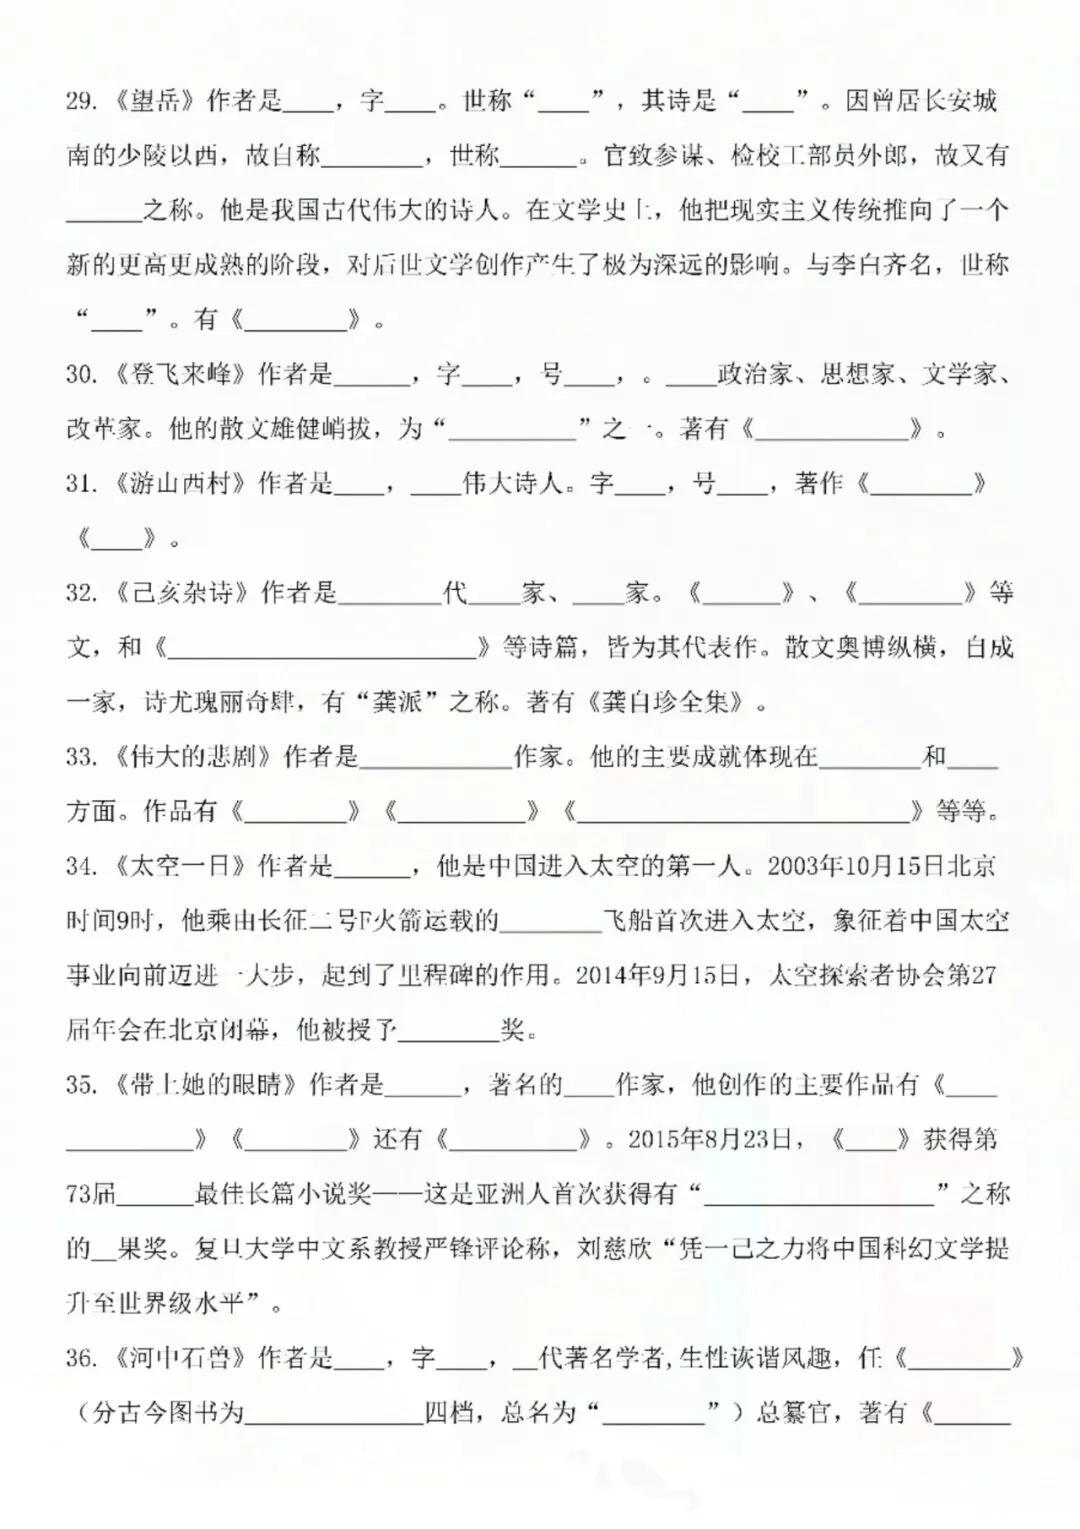 29.《望岳》作者是____，字____。世称“____”，其诗是“____”。因曾居长安城
南的少陵以西，故自称________，世称______。官致参谋、检校工部员外郎，故又有
______之称。他是我国古代伟大的诗人。在文学史上，他把现实主义传统推向了一个
新的更高更成熟的阶段，对后世文学创作产生了极为深远的影响。与李白齐名，世称
“____”。有《________》。
30.《登飞来峰》作者是______，字____，号____，。____政治家、思想家、文学家、
改革家。他的散文雄健峭拔，为“__________”之一。著有《____________》。
31.《游山西村》作者是____，____伟大诗人。字____，号____，著作《________》
《____》。
32.《己亥杂诗》作者是________代____家、____家。《______》、《________》等
文，和《________________________》等诗篇，皆为其代表作。散文奥博纵横，自成
一家，诗尤瑰丽奇肆，有“龚派”之称。著有《龚自珍全集》。
33.《伟大的悲剧》作者是____________作家。他的主要成就体现在________和____
方面。作品有《________》《__________》《__________________________》等等。
34.《太空一日》作者是______，他是中国进入太空的第一人。2003年10月15日北京
时间9时，他乘由长征二号F火箭运载的________飞船首次进入太空，象征着中国太空
事业向前迈进一大步，起到了里程碑的作用。2014年9月15日，太空探索者协会第27
届年会在北京闭幕，他被授予________奖。
35.《带上她的眼睛》作者是______，著名的____作家，他创作的主要作品有《____
__________》《________》还有《__________》。2015年8月23日，《____》获得第
73届______最佳长篇小说奖——这是亚洲人首次获得有“__________________”之称
的__果奖。复旦大学中文系教授严锋评论称，刘慈欣“凭一己之力将中国科幻文学提
升至世界级水平”。
36.《河中石兽》作者是____，字____，__代著名学者,生性诙谐风趣，任《________》
（分古今图书为______________四档，总名为“________”）总纂官，著有《______